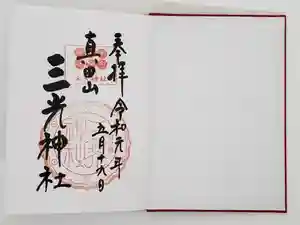 奉拝
令和元年
五月十九日
真田山
三光神社